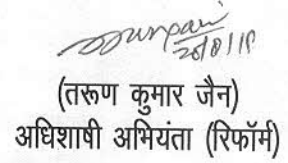 20/8/19
(तरूण कुमार जैन)
अधिशाषी अभियंता (रिफॉर्म)